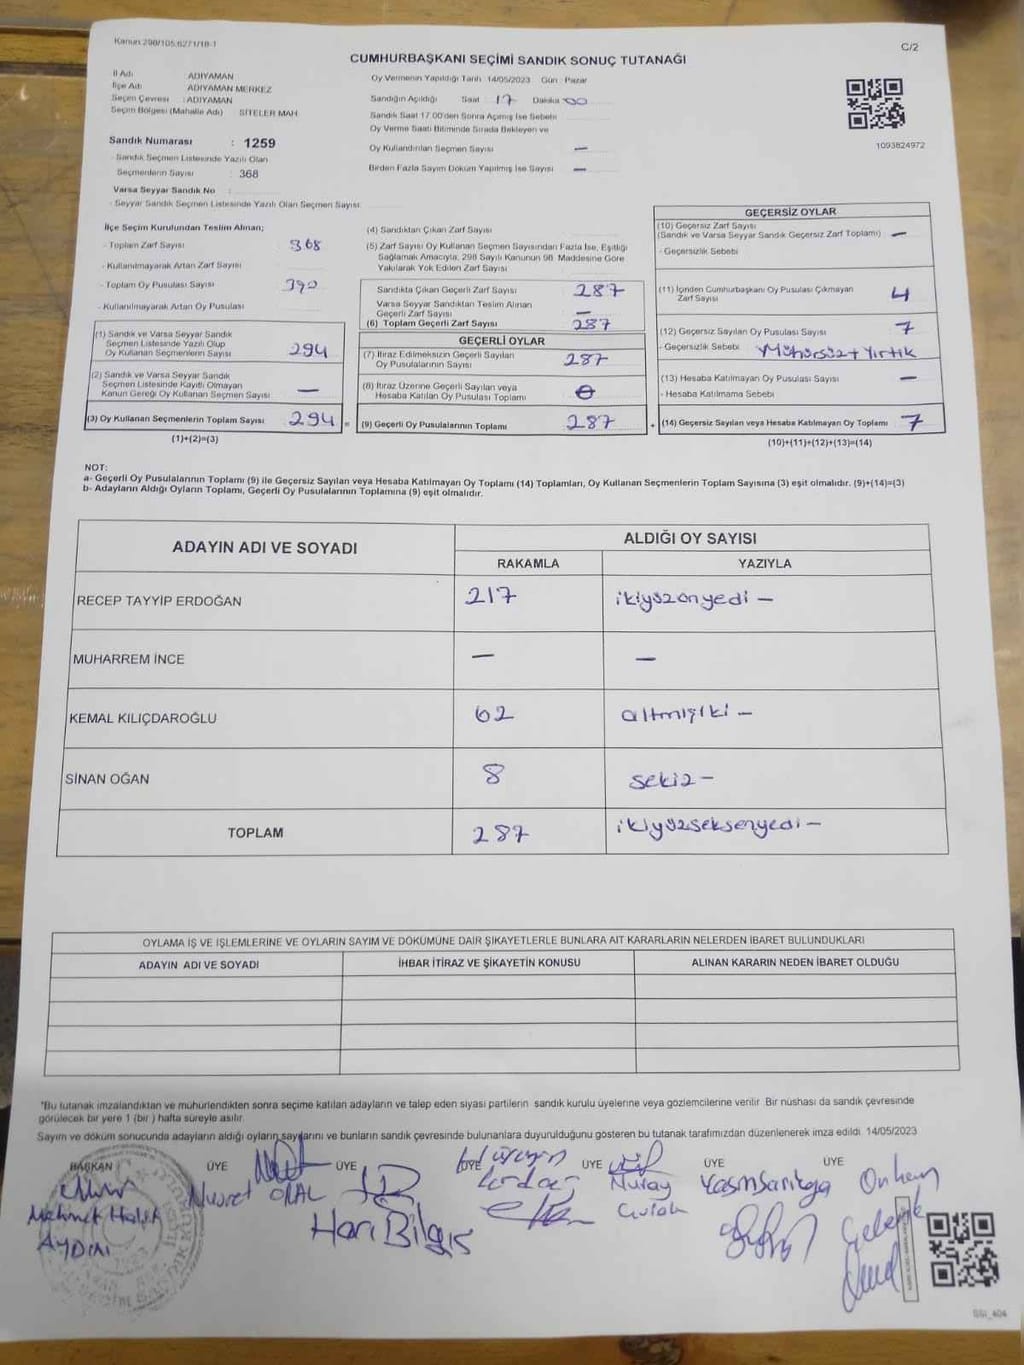 Kanun 298/105.627/1/18-1
C/2
CUMHURBAŞKANI SEÇİMİ SANDIK SONUÇ TUTANAĞI
İl Adı : ADIYAMAN
İlçe Adı : ADIYAMAN MERKEZ
Seçim Çevresi : ADIYAMAN
Seçim Bölgesi (Mahalle Adı) : SİTELER MAH.
Sandık Numarası : 1259
Sandık Seçmen Listesinde Yazılı Olan
Seçmenlerin Sayısı : 368
Varsa Seyyar Sandık No :
- Seyyar Sandık Seçmen Listesinde Yazılı Olan Seçmen Sayısı:
Oy Vermenin Yapıldığı Tarih 14/05/2023 Gün : Pazar
Sandığın Açıldığı Saat 17 Dakika 00
Sandık Saat 17.00'den Sonra Açımış İse Sebebi
Oy Verme Saati Bitiminde Sırada Bekleyen ve
Oy Kullandırılan Seçmen Sayısı —
Birden Fazla Sayım Döküm Yapılmış İse Sayısı —
1093824972
İlçe Seçim Kurulundan Teslim Alınan;
- Toplam Zarf Sayısı 368
- Kullanılmayarak Artan Zarf Sayısı
- Toplam Oy Pusulası Sayısı 390
- Kullanılmayarak Artan Oy Pusulası
(1) Sandık ve Varsa Seyyar Sandık
Seçmen Listesinde Yazılı Olup
Oy Kullanan Seçmenlerin Sayısı 294
(2) Sandık ve Varsa Seyyar Sandık
Seçmen Listesinde Kayıtlı Olmayan
Kanun Gereği Oy Kullanan Seçmen Sayısı —
(3) Oy Kullanan Seçmenlerin Toplam Sayısı 294 =
(1)+(2)=(3)
(4) Sandıktan Çıkan Zarf Sayısı
(5) Zarf Sayısı Oy Kullanan Seçmen Sayısından Fazla İse, Eşitliği
Sağlamak Amacıyla, 298 Sayılı Kanunun 98. Maddesine Göre
Yakılarak Yok Edilen Zarf Sayısı
Sandıkta Çıkan Geçerli Zarf Sayısı 287
Varsa Seyyar Sandıktan Teslim Alınan
Geçerli Zarf Sayısı —
(6) Toplam Geçerli Zarf Sayısı 287
GEÇERLİ OYLAR
(7) İtiraz Edilmeksizin Geçerli Sayılan
Oy Pusulalarının Sayısı 287
(8) İtiraz Üzerine Geçerli Sayılan veya
Hesaba Katılan Oy Pusulası Toplamı 0
(9) Geçerli Oy Pusulalarının Toplamı 287 +
GEÇERSİZ OYLAR
(10) Geçersiz Zarf Sayısı
(Sandık ve Varsa Seyyar Sandık Geçersiz Zarf Toplamı) —
- Geçersizlik Sebebi
(11) İçinden Cumhurbaşkanı Oy Pusulası Çıkmayan
Zarf Sayısı 4
(12) Geçersiz Sayılan Oy Pusulası Sayısı 7
- Geçersizlik Sebebi Mühürsüz + Yırtık
(13) Hesaba Katılmayan Oy Pusulası Sayısı —
- Hesaba Katılmama Sebebi
(14) Geçersiz Sayılan veya Hesaba Katılmayan Oy Toplamı 7
(10)+(11)+(12)+(13)=(14)
NOT:
a- Geçerli Oy Pusulalarının Toplamı (9) ile Geçersiz Sayılan veya Hesaba Katılmayan Oy Toplamı (14) Toplamları, Oy Kullanan Seçmenlerin Toplam Sayısına (3) eşit olmalıdır. (9)+(14)=(3)
b- Adayların Aldığı Oyların Toplamı, Geçerli Oy Pusulalarının Toplamına (9) eşit olmalıdır.
ADAYIN ADI VE SOYADI
ALDIĞI OY SAYISI
RAKAMLA YAZIYLA
RECEP TAYYİP ERDOĞAN 217 ikiyüzonyedi —
MUHARREM İNCE — —
KEMAL KILIÇDAROĞLU 62 altmışiki —
SİNAN OĞAN 8 sekiz —
TOPLAM 287 ikiyüzseksenyedi —
OYLAMA İŞ VE İŞLEMLERİNE VE OYLARIN SAYIM VE DÖKÜMÜNE DAİR ŞİKAYETLERLE BUNLARA AİT KARARLARIN NELERDEN İBARET BULUNDUKLARI
ADAYIN ADI VE SOYADI İHBAR İTİRAZ VE ŞİKAYETİN KONUSU ALINAN KARARIN NEDEN İBARET OLDUĞU
*Bu tutanak imzalandıktan ve mühürlendikten sonra seçime katılan adayların ve talep eden siyasi partilerin sandık kurulu üyelerine veya gözlemcilerine verilir. Bir nüshası da sandık çevresinde
görülecek bir yere 1 (bir ) hafta süreyle asılır.
Sayım ve döküm sonucunda adayların aldığı oyların sayılarını ve bunların sandık çevresinde bulunanlara duyurulduğunu gösteren bu tutanak tarafımızdan düzenlenerek imza edildi. 14/05/2023
BAŞKAN ÜYE ÜYE ÜYE ÜYE ÜYE ÜYE
Mehmet Halik
AYDIN
Nusret ORAL
Hari Bilgis
Nuray
Orhan
SSI_404